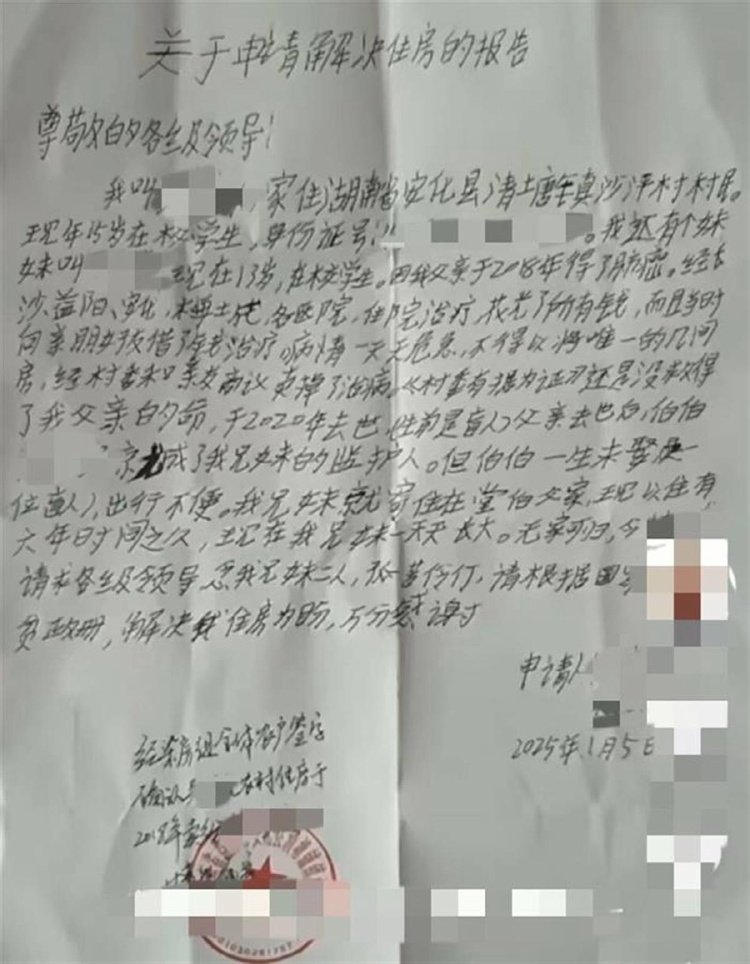 关于申请解决住房的报告
尊敬的各级领导！
我叫，家住湖南省安化县清塘镇沙坪村村民。
现年15岁在校学生，身份证号。我还有个妹
妹叫现在13岁，在校学生。因我父亲于2018年得了肺癌。经长
沙、益阳、安化、各医院，住院治疗，花光了所有钱，而且当时
向亲朋好友借了钱治疗，病情一天天危急，不得以将唯一的几间
房，经村委和亲友商议卖掉了治病。（村委有据为证）还是没救得
了我父亲的命，于2020年去世，生前是盲人）父亲去世后，伯伯
成了我兄妹的监护人。但伯伯一生未娶是一
位盲人），出行不便。我兄妹就寄住在堂伯父家，现以住有
六年时间之久，现在我兄妹一天天长大。无家可归，
请求各级领导忍我兄妹二人，孤苦伶仃，请根据国
贫政册，解决我住房为盼，万分感谢！
申请人
2025年1月5日
经组全体农户签字
确认农村住房于
2018年